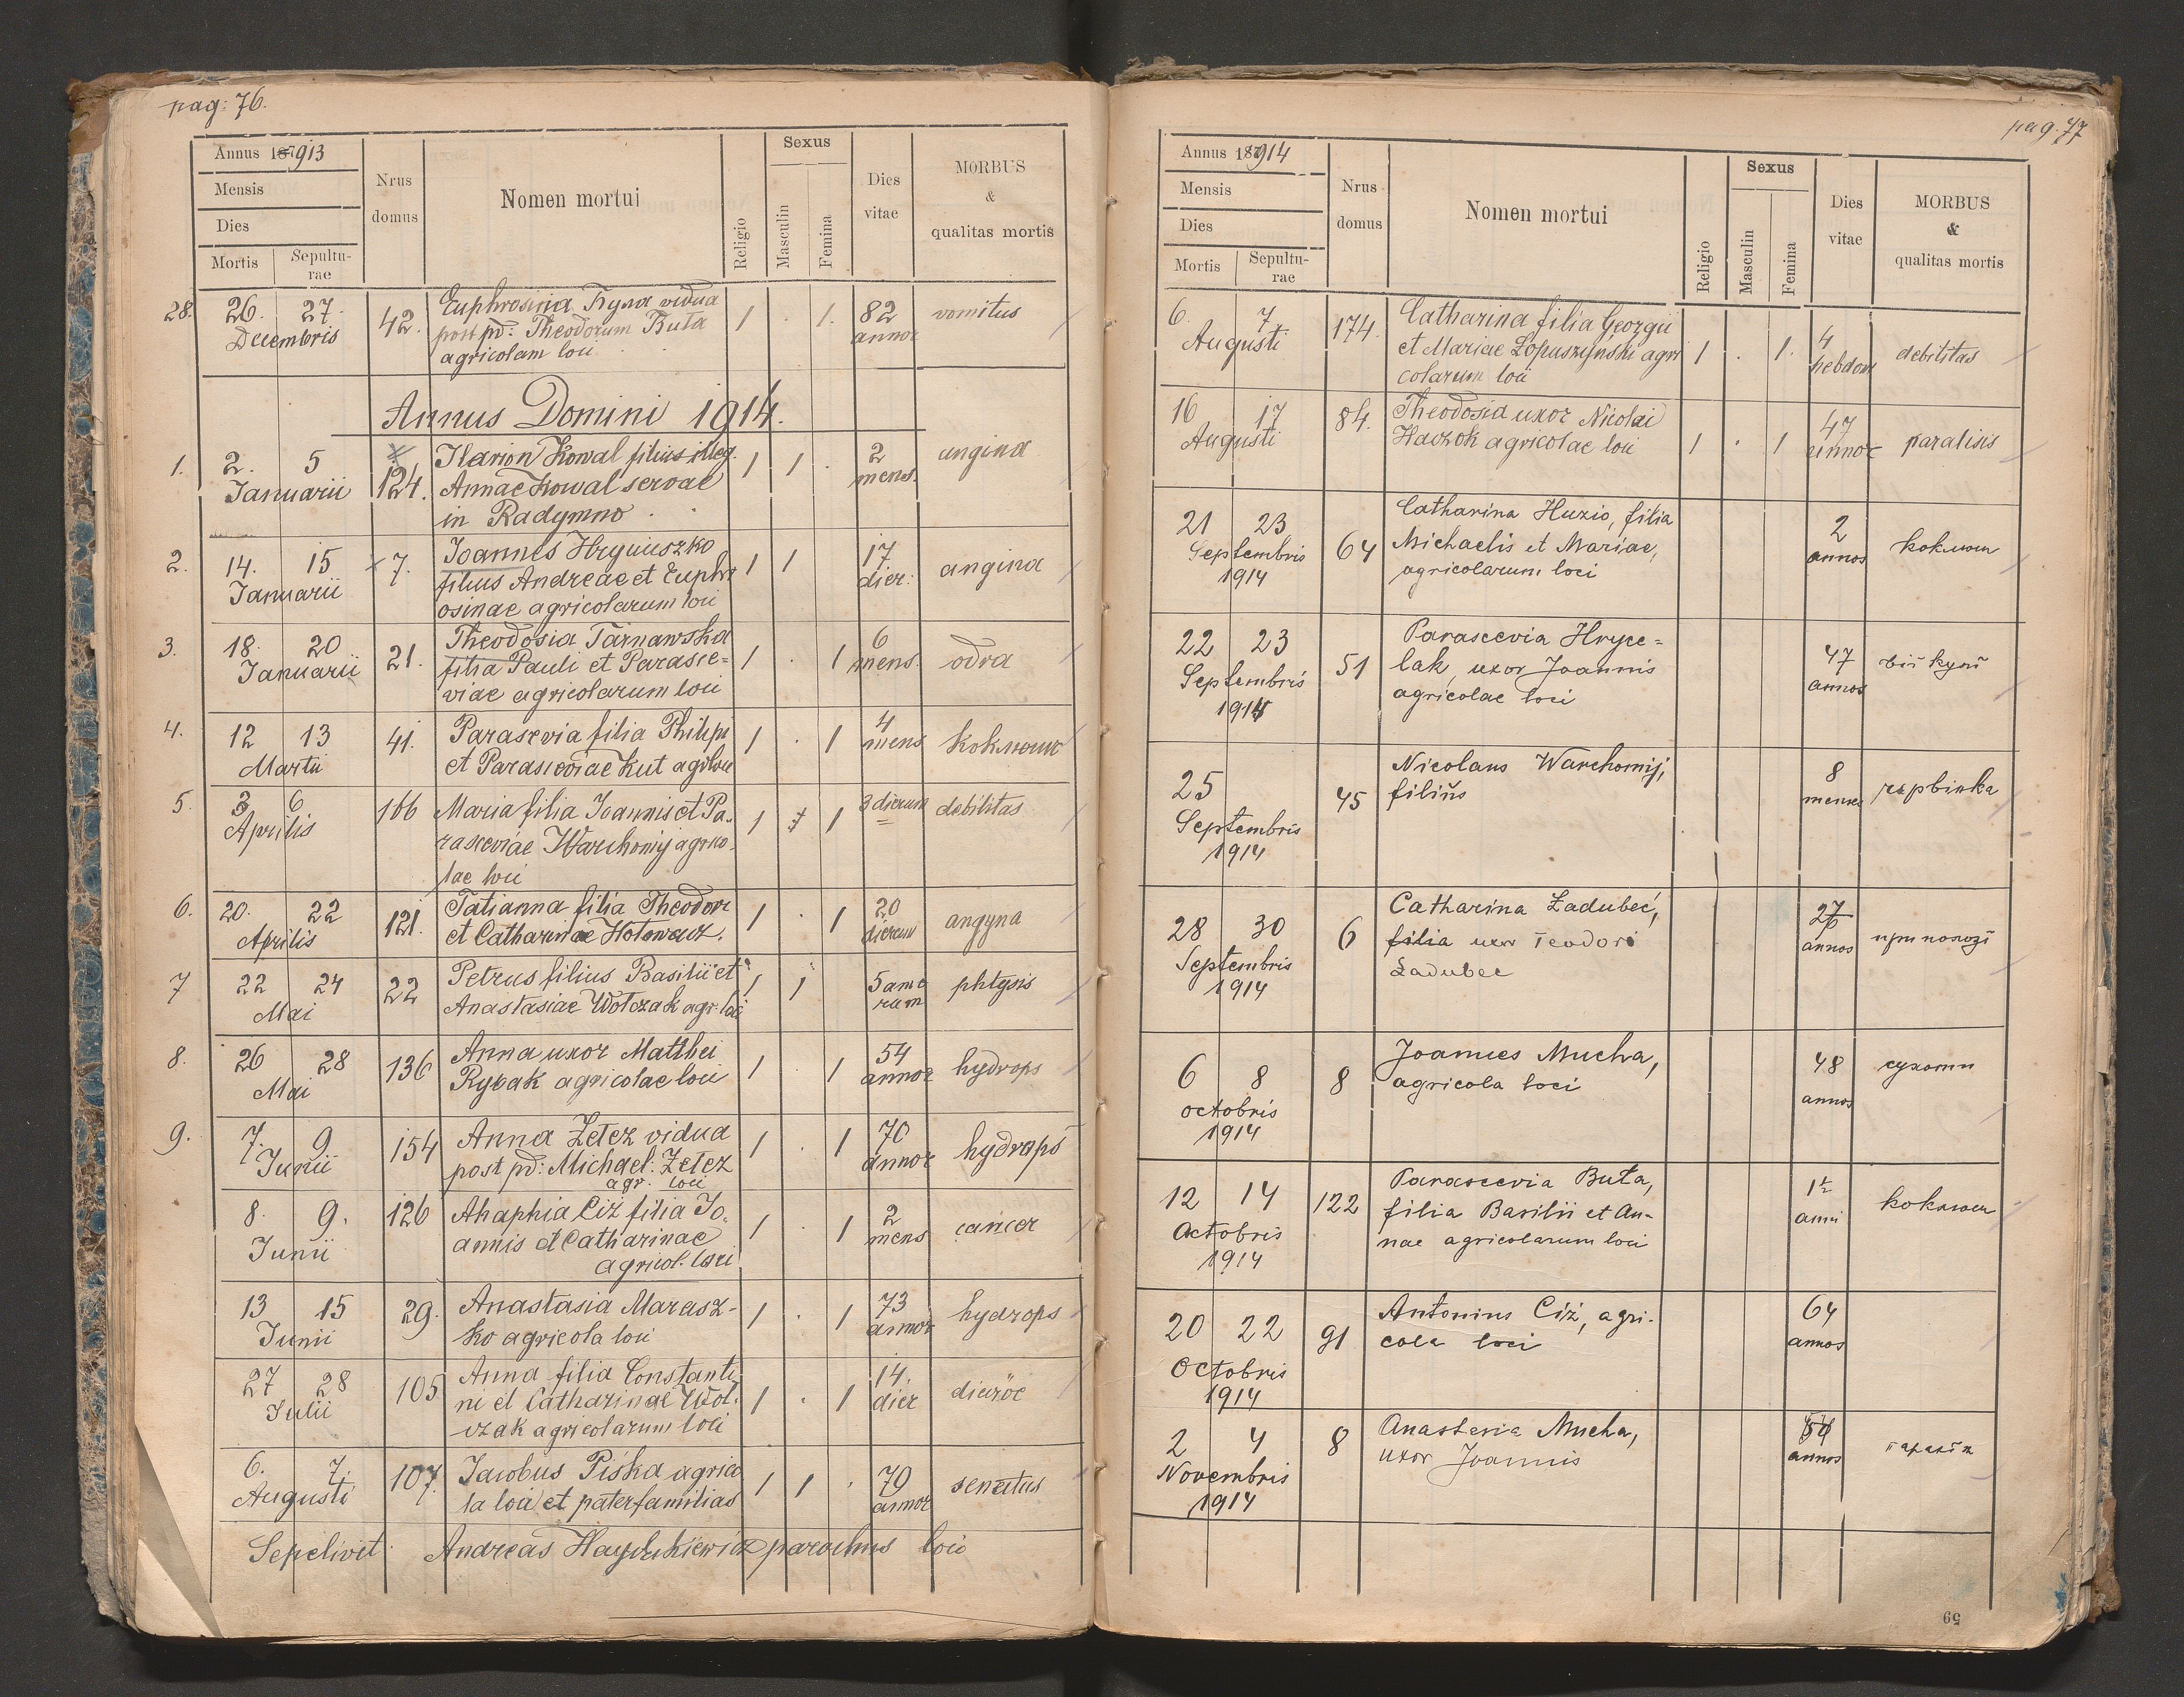 pag: 76.
Annus 187913
Mensis
Dies
Mortis Sepultu-
rae
Nrus
domus
Nomen mortui
Religio
Sexus
Masculin
Femina
Dies
vitae
MORBUS
&
qualitas mortis
28. 26. 27. 42. Euphrosina Кула vidua 1 . 1. 82 vomitus
Decembris post pd: Theodorum Buła annor
agricolam loci
Annus Domini 1914.
1. 2. 5 124. Ilarion Kowal filius illeg. 1 1 . 2 angina
Januarii Annae Kowal servae mens.
in Radymno
2. 14. 15 7. Joannes Hryniuszko 1 1 17 angina
Januarii filius Andreae et Euphr dier:
osinae agricolarum loci
3. 18. 20 21. Theodosia Tarnawska 1 . 1 6 odra
Januarii filia Pauli et Parasce= mens.
viae agricolarum loci
4. 12 13 41. Parascevia filia Philipi 1 . 1 4 коклюш
Martii et Parasceviae Kut agr loci mens
5. 3 6 166 Maria filia Joannis et Pa- 1 1 3 dierum debilitas
Aprilis rasceviae Warchomij agrico-
lae loci
6. 20. 22 121. Tatianna filia Theodori 1 . 1 20 angyna
Aprilis et Catharinae Hołowacz. dierum
7 22 24 22 Petrus filius Basilii et 1 1 5 anno phtysis
Mai Anastasiae Wołczak agr. loci rum
8. 26 28 136 Anna uxor Matthei 1 . 1 54 hydrops
Mai Rybak agricolae loci annor
9. 7. 9 154 Anna Zełez vidua 1 . 1 70 hydrops
Junii post pd: Michael: Zełez annor
agr. loci
8. 9. 126 Ahaphia Ciż filia Jo- 1 . 1 2 cancer
Junii annis et Catharinae mens
agricol. loci
13 15 29. Anastasia Marusz- 1 . 1 73 hydrops
Junii ko agricola loci annor
27 28 105 Anna filia Constanti 1 . 1 14. diaröe
Julii ni et Catharinae Woł- dier
czak agricolarum loci
6. 7. 107. Jacobus Piśka agrico 1 1 . 70 senectus
Augusti la loci et paterfamilias annor
Sepelivit Andreas Haydukiewicz parochus loci
pag. 77
Annus 187914
Mensis
Dies
Mortis Sepultu-
rae
Nrus
domus
Nomen mortui
Religio
Sexus
Masculin
Femina
Dies
vitae
MORBUS
&
qualitas mortis
6. 7. 174. Catharina filia Georgii 1 . 1. 4 debilitas
Augusti et Mariae Łopuszyński agri hebdom
colarum loci
16 17 84. Theodosia uxor Nicolai 1 . 1 47 paralisis
Augusti Haczok agricolae loci annor
21 23 64 Catharina Huzio, filia 2 коклюш
Septembris Michaelis et Mariae, annos
1914 agricolarum loci
22 23 51 Parascevia Hryce= 47 від кулї
Septembris lak, uxor Joannis annos
1914 agricolae loci
25 45 Nicolaus Warchomij, 8 червінка
Septembris filius menses
1914
28 30 6 Catharina Ładubeć, 27 при пологі
Septembris filia uxor Teodori annos
1914 Ładubec
6 8 8 Joannes Mucha, 48 сухоти
octobris agricola loci annos
1914
12 14 122 Parascevia Buła, 1½ коклюш
Octobris filia Basilii et An- anni
1914 nae agricolarum loci
20 22 91 Antonius Ciż, agri- 64
Octobris cola loci annos
1914
2 4 8 Anastasia Mucha,
Novembris uxor Joannis annos
1914
59